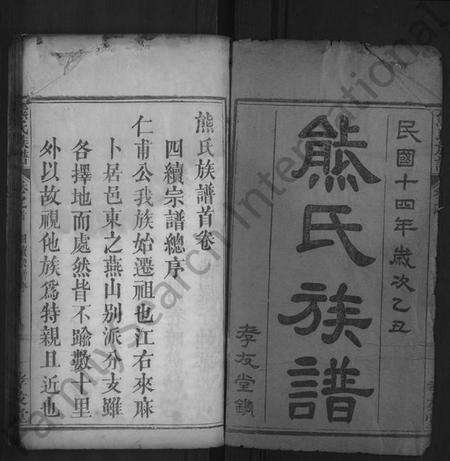 民國十四年歲次乙丑
熊氏族譜
孝友堂鐫
熊氏族譜首卷
四續宗譜總序
仁甫公我族始遷祖也江右來麻
卜居邑東之燕山別派分支雖
各擇地而處然皆不踰數十里
外以故視他族為特親且近也
FamilySearch International